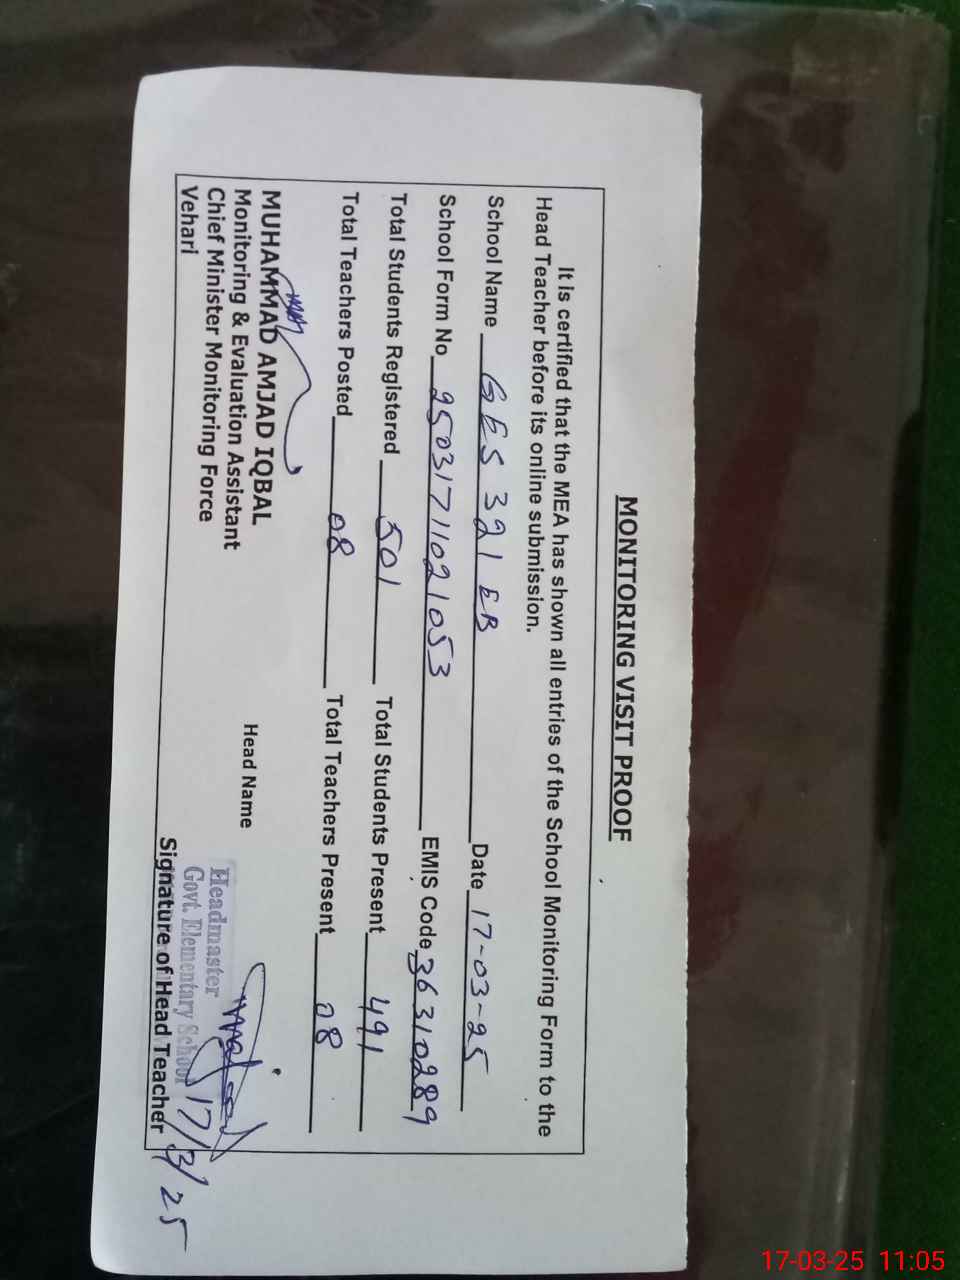 MONITORING VISIT PROOF
It is certified that the MEA has shown all entries of the School Monitoring Form to the
Head Teacher before its online submission.
School Name GES 321 EB Date 17-03-25
School Form No 25031711021053 EMIS Code 36310289
Total Students Registered 501 Total Students Present 491
Total Teachers Posted 08 Total Teachers Present 08
MUHAMMAD AMJAD IQBAL
Monitoring & Evaluation Assistant
Chief Minister Monitoring Force
Vehari
Head Name
Headmaster
Govt. Elementary School
17/3/25
Signature of Head Teacher
17-03-25 11:05